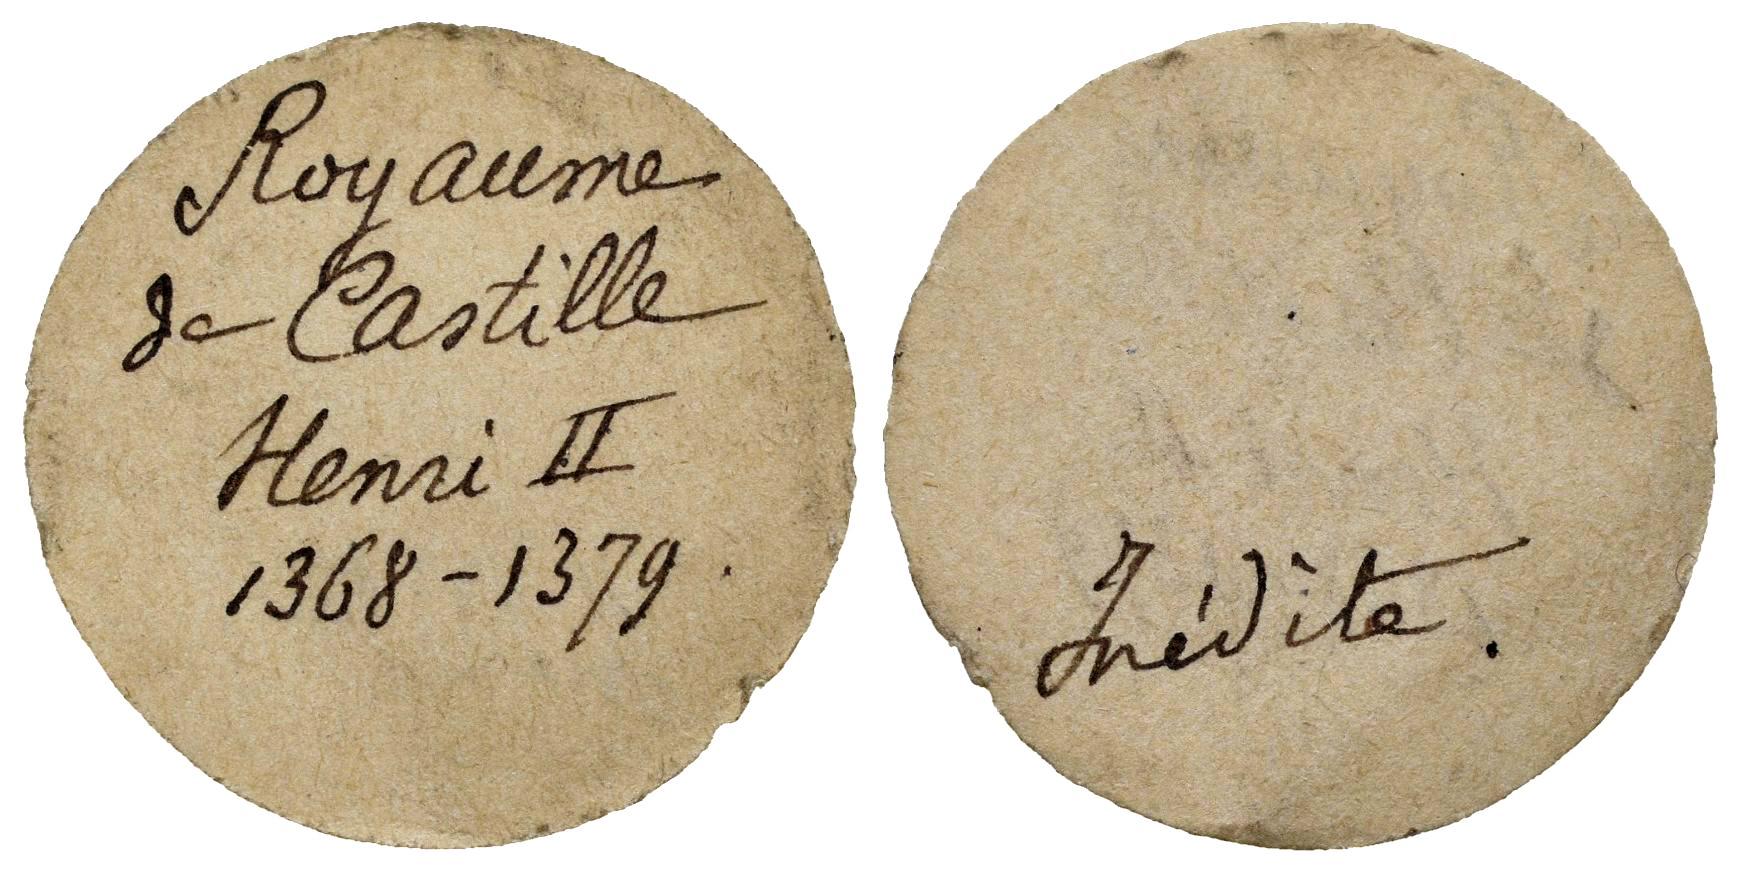 Royaume
de Castille
Henri II
1368-1379.
Inédite.